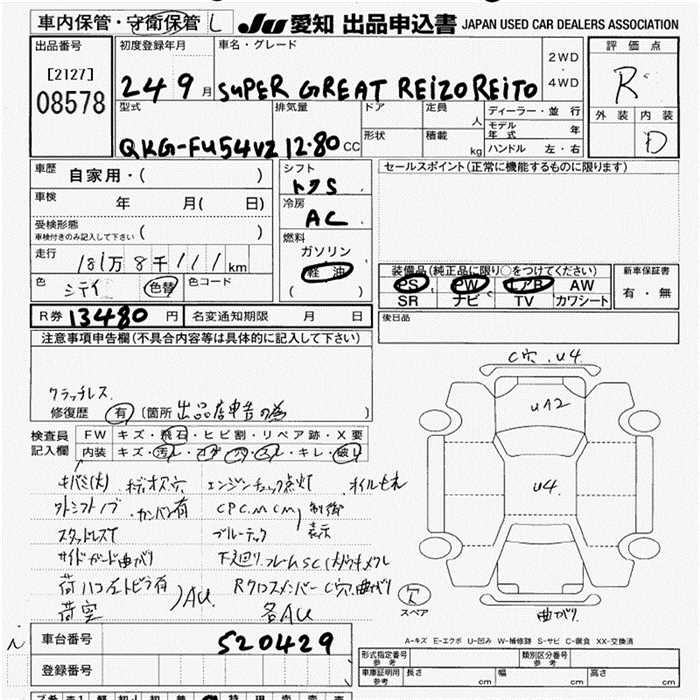 車内保管・守衛保管 し JU 愛知 出品申込書 JAPAN USED CAR DEALERS ASSOCIATION
出品番号 初度登録年月 車名・グレード 2WD ・ 4WD 評価点
[2127] 24 9 月 SUPER GREAT REIZOREITO R
08578
型式 排気量 ドア 定員 人 ディーラー・並行 外装 内装
モデル年式 年
QKG-FU54VZ 12.80 CC 形状 積載 kg ハンドル 左・右 D
車歴 自家用・( ) シフト セールスポイント(正常に機能するものに限ります)
車検 年 月( 日) 冷房
AC
受検形態 ( )
車検付きのみ記入して下さい
燃料
ガソリン
走行 181万8千111km 軽油
装備品(純正品に限り○をつけてください) 新車保証書
色 シテイ 色替 色コード ( ) PS PW エアB AW 有・無
SR ナビ TV カワシート
R券 13480 円 名変通知期限 月 日 後日品
注意事項申告欄(不具合内容等は具体的に記入して下さい)
C穴 U4.
クラッチレス
修復歴 有 (箇所 出品店申告の為 )
U12
検査員 FW キズ・飛石・ヒビ割・リペア跡・X要
記入欄 内装 キズ・汚レ・コゲ・穴・スレ・キレ・破レ
エンジンチェック点灯 オイルもれ
カンバン有 CPC.MCM 制御
U4.
スタッドレスT ブルーテック 表示
サイドガード曲がり
荷ハコ左トビラ有 AU RクロスメンバーC穴曲がり
荷空 各AU
欠
スペア
曲がり
車台番号 520429
A-キズ E-エクボ U-凹み W-補修跡 S-サビ C-腐食 XX-交換済
登録番号 形式指定番号 参考 類別区分番号 参考
車庫証明用 参考 長さ cm 幅 cm 高さ cm